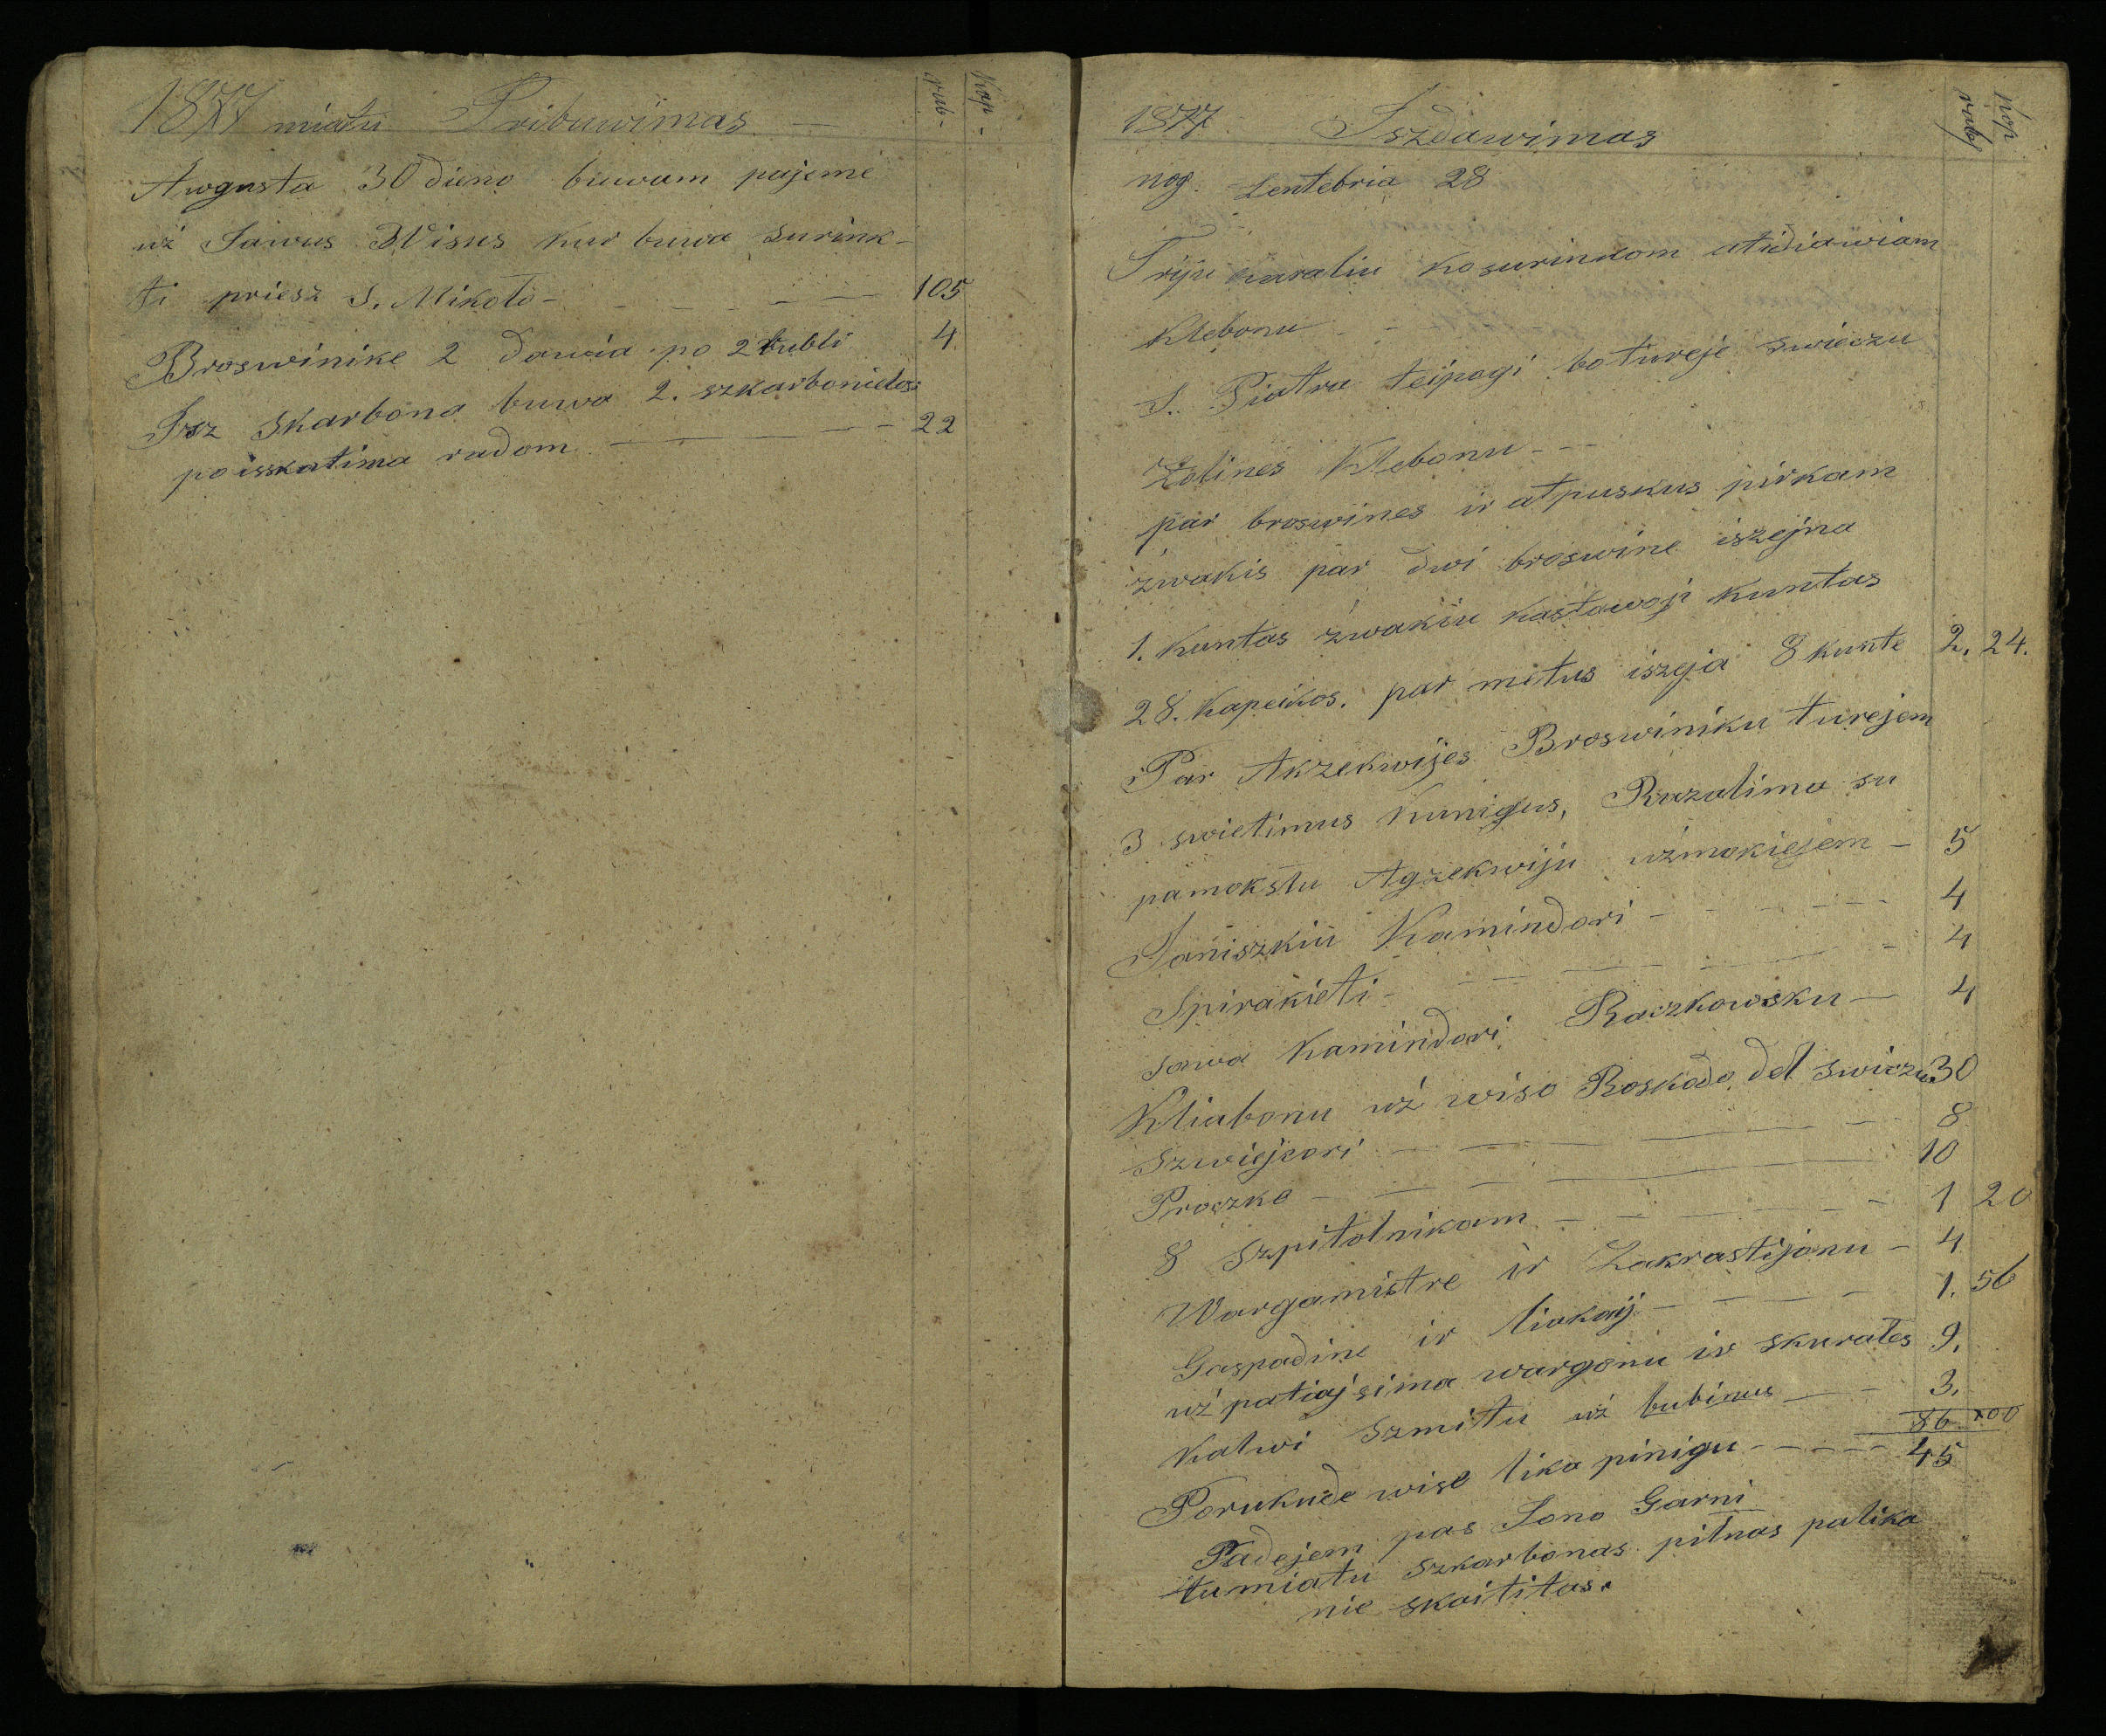 1877 miatu Pribuwimas — rub- Kop-
Awgusta 30 dieno buwam pajemė
už Jawus Wisus kur buwa surink-
ti priesz S. Mikolo - 105
Broswinike 2 dawia po 2 rubli 4
Isz Skarbona buwa 2. szkarbonieles
poisskatima radom — 22
1877 Iszdawimas rub Kop
nog. Zentebria 28
Triju karaliu ko surinkom atidiawiam
Klebonu - -
S. Piatra teipogi bo tureje swieczu
Zolines Klebonu - - -
par broswines ir atpuskus pirkam
żwakis par dwi broswine iszejma
1. kuntas żwakiu kastawoji kuntas
28. kapeikos. par metus iszeja 8 kunte 2. 24.
Par Akzekwijes Broswiniku turejom
3 swietimus kunigus, Razalimo su
pamokslu Agzekwiju użmokiejem - 5
Joniszkiu Kamindori - 4
Spirakieti - 4
sawa Kamindori Raczkowsku — 4
Kliabonu uż wiso Roskado del swiczu 30
Szwiejcori — 8
Proczko - 10
8 Szpitolnikam - 1 20
Wargamistre ir Zakrastijonu - 4
Gaspadine ir liokaij - 1. 56
uż patiajsima wargonu ir skurates 9.
Kalwi Szmitu uż bubinus - 3.
86 00
Porukude wiso lika pinigu - 45
Padejem pas Jono Garni
tu miatu szkarbonas pilnas palika
nie skaititas.